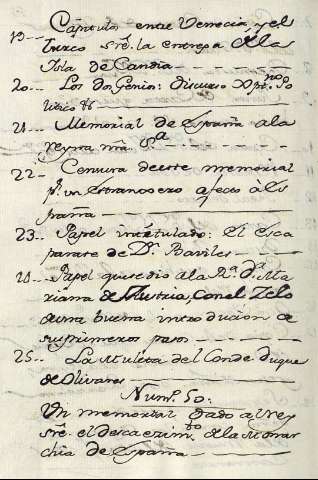 19-- Capitulos entre Venecia, y el
Turco sre. la entrega de la
Isla de Candia
20-- Los dos Genios: discurso Xptno. Po
litico &
21-- Memorial de España a la
Reyna nra. Sa.
22-- Censura de este memorial
pr. un Estrangero afecto a Es
paña
23-- Papel intitulado: El Esca
parate de Dn.
24 Papel que se dio a la Rna. Da. Ma
riana de Austria, con el Zelo
de una buena introducion de
sus primeros pasos
25-- La Muleta del Conde Duque
de Olivares
Numo. 50:
Un memorial dado al Rey
sre. el descaezimto. de la Monar
chia de España